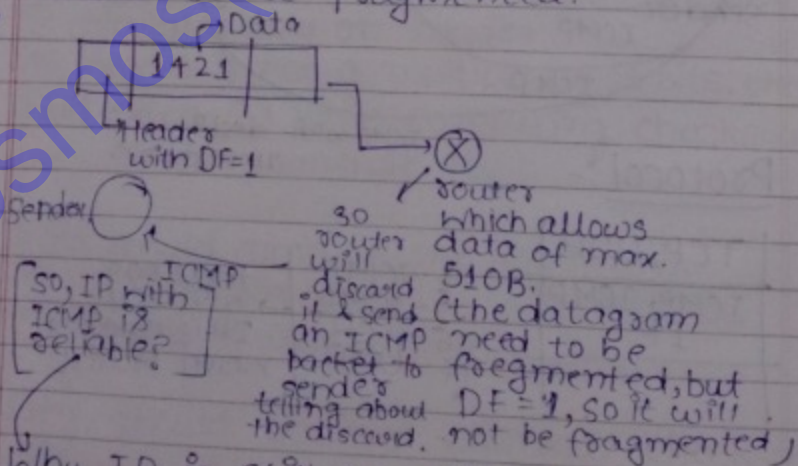 fragmented.
Data
1421
Header
with DF=1
router
Sender
which allows
data of max.
510B.
(the datagram
need to be
fregmented, but
DF=1, so it will
not be fragmented)
so
router
will
discard
it & send
an ICMP
packet to
sender
telling about
the discard.
ICMP
[so, IP with
ICMP is
reliable?]
smos